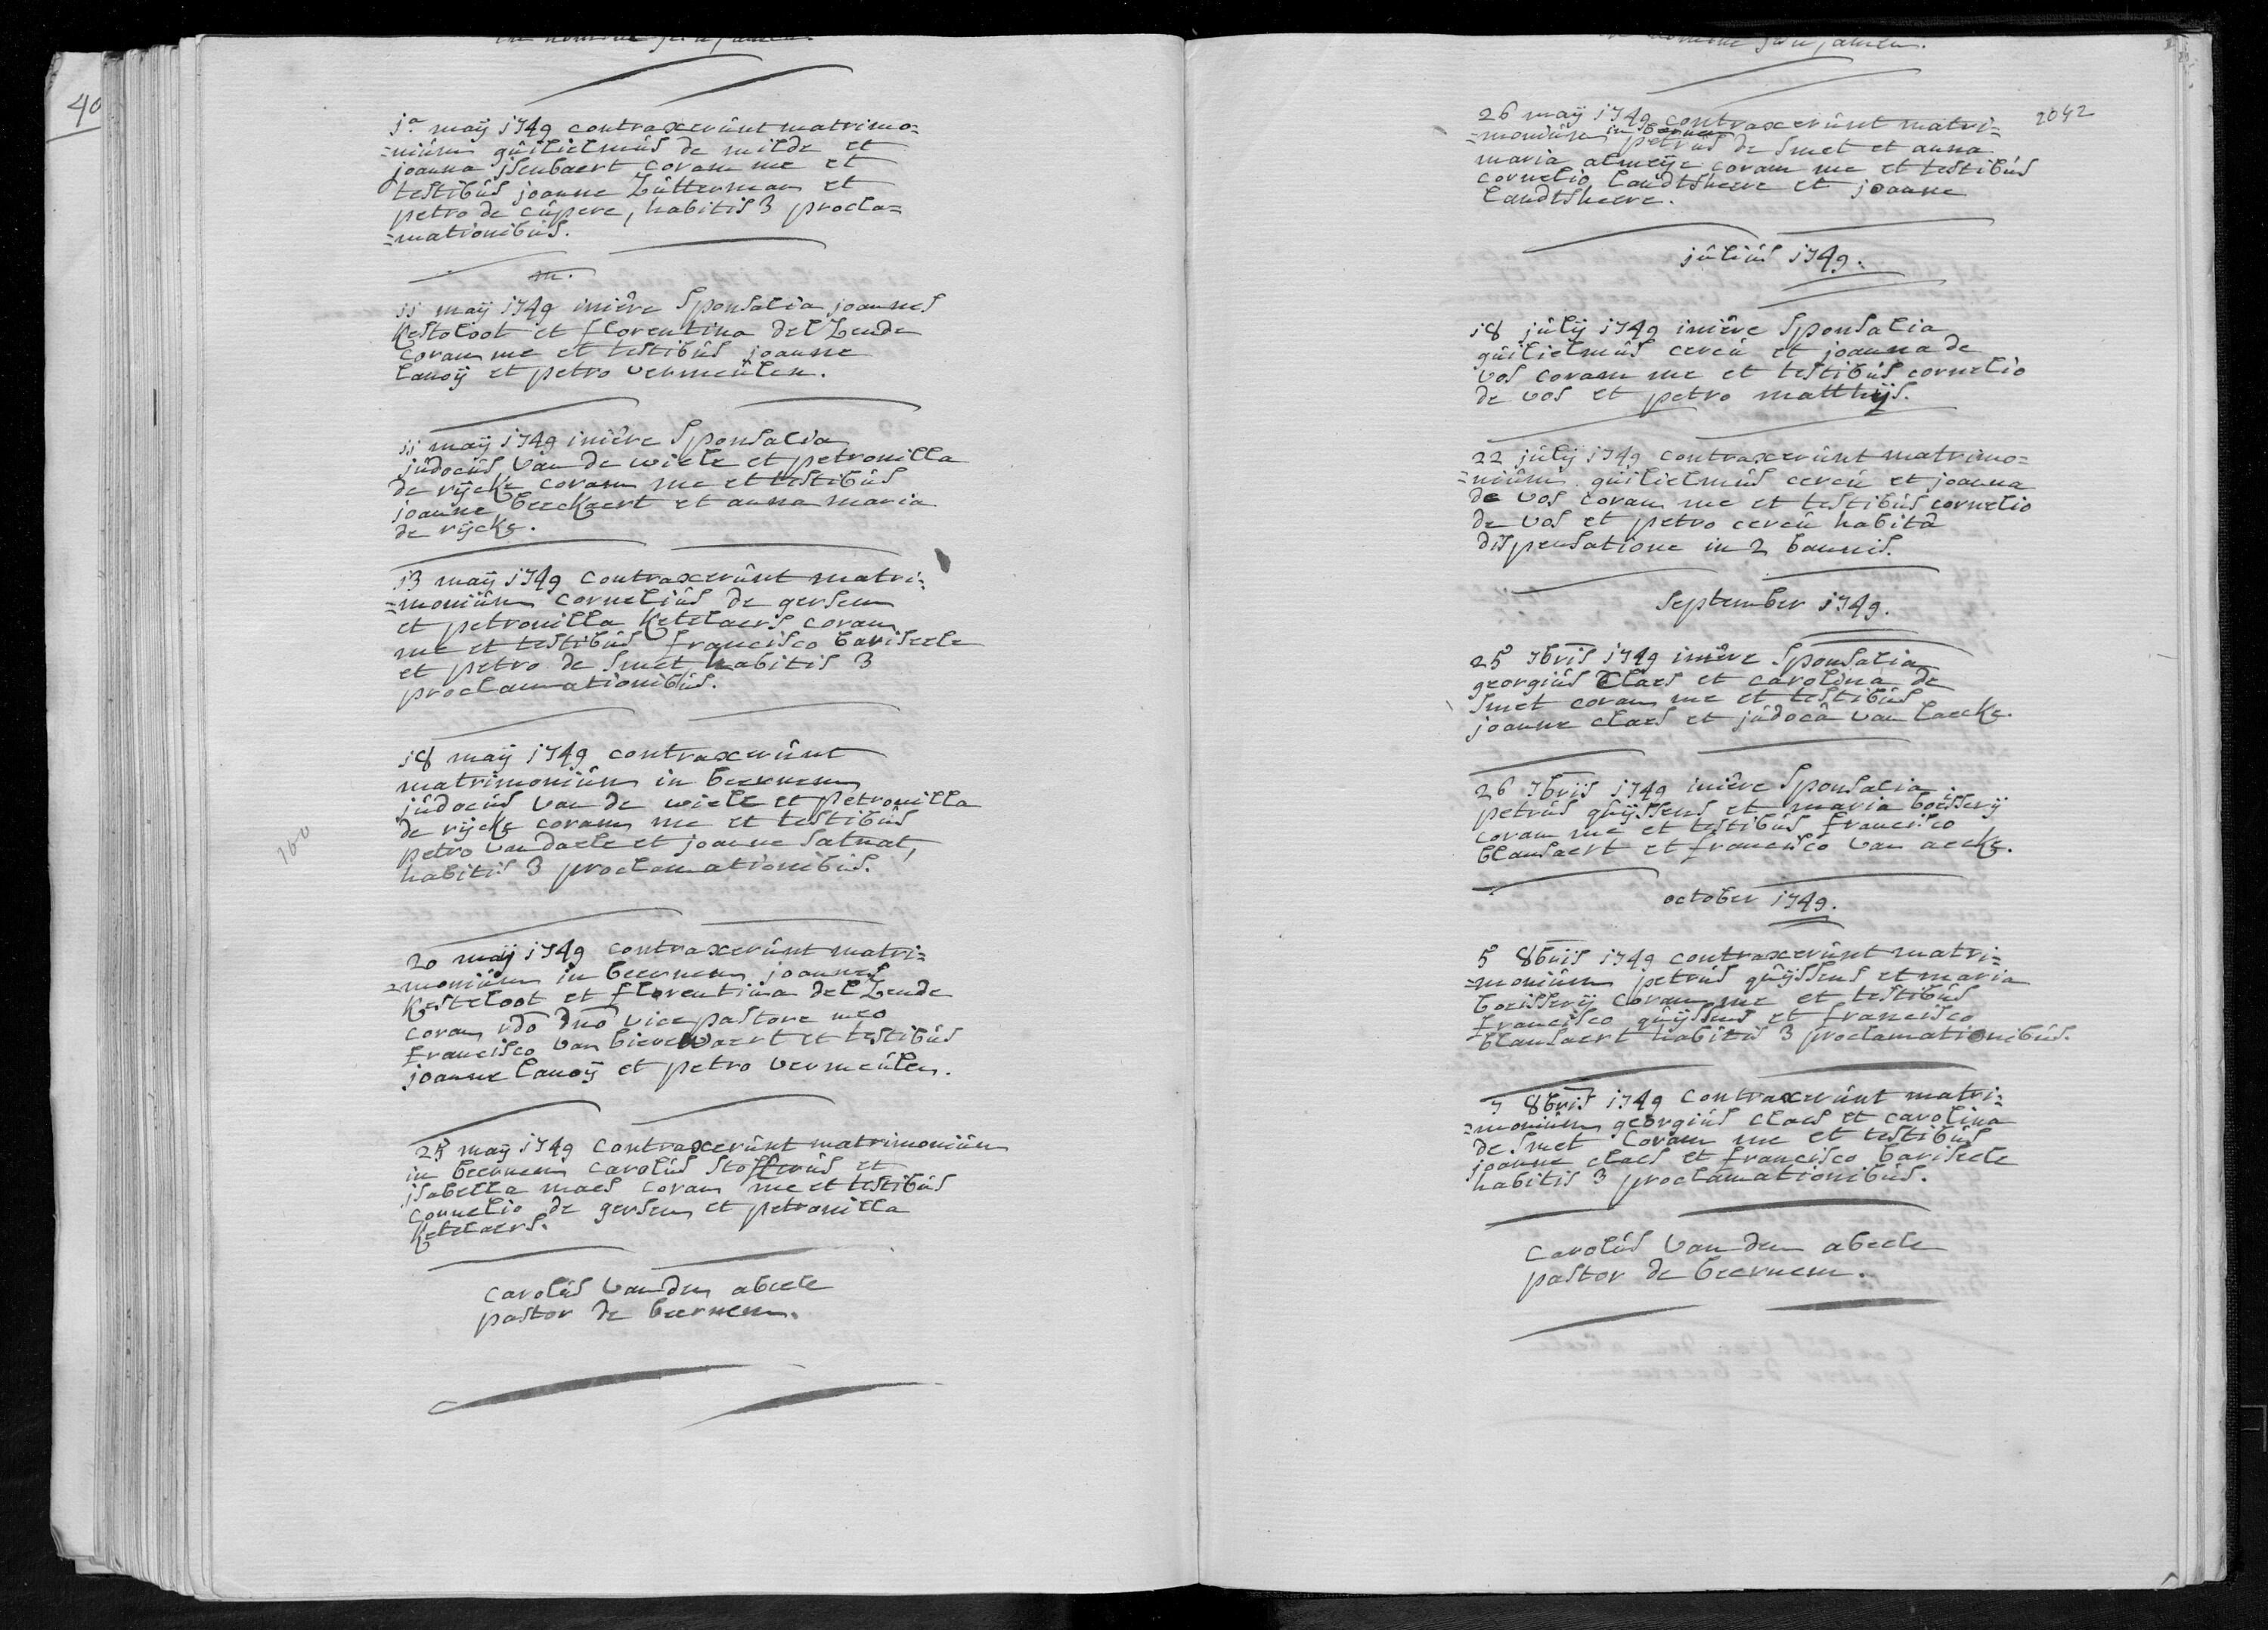 40
1.a maÿ 1749 contraxerûnt matrimo=
=niûm gûilielmûs de milde et
joanna jsenbaert coram me et
testibûs joanne Lûtterman et
petro de cûpere, habitis 3 procla=
=mationibûs.
m.
11 maÿ 1749 iniêre sponsalia joannes
Kestoloot et florentina del Zende
coram me et testibûs joanne
lanoÿ et petro vermeûlen.
11 maÿ 1749 iniêre sponsalia
jûdocûs van de wiele et petronilla
de rÿcke coram me et testibûs
joanne beeckaert et anna maria
de rÿcke.
13 maÿ 1749 contraxerûnt matri=
=moniûm corneliûs de gersem
et petronilla Ketelaers coram
me et testibûs francisco bariseele
et petro de smet habitis 3
proclamationibûs.
18 maÿ 1749 contraxerûnt
matrimoniûm in beernem
jûdocûs van de wiele et petronilla
de rÿcke coram me et testibûs
petro van daele et joanne
habitis 3 proclamationibûs.
160
20 maÿ 1749 contraxerûnt matri=
=moniûm in beernem joannes
Kesteloot et florentina del Zende
coram rdo dno vice pastore meo
francisco van bierewaert et testibûs
joanne lanoÿ et petro vermeûlen.
25 maÿ 1749 contraxerûnt matrimoniûm
in beernem carolûs stofferûs et
jsabella maes coram me et testibûs
cornelio de gersem et petronilla
Ketelaers.
carolûs vanden abeele
pastor de beernem.
2042
26 maÿ 1749 contraxerûnt matri=
=moniûm in beernem petrûs de smet et anna
maria almeÿe coram me et testibûs
cornelio landtsheere et joanne
landtsheere.
jûliûs 1749.
18 jûlij 1749 iniêre sponsalia
gûilielmûs cereû et joanna de
vos coram me et testibûs cornelio
de vos et petro matthijs.
22 jûlij 1749 contraxerûnt matrimo=
=niûm gûilielmûs cereû et joanna
de vos coram me et testibûs cornelio
de vos et petro cereû habitâ
dispensatione in 2 bannis.
september 1749.
25 7bris 1749 iniêre sponsalia
georgiûs Claes et carolina de
smet coram me et testibûs
joanne claes et jûdocâ van laecke.
26 7bris 1749 iniêre sponsalia
petrûs gûijssens et maria boisserij
coram me et testibûs francisco
blansaert et francisco van aecke.
october 1749.
5 8bris 1749 contraxerûnt matri=
=moniûm petrûs gûijssens et maria
boisserij coram me et testibûs
francisco gûijssens et francisco
blansaert habitis 3 proclamationibûs.
7 8bris 1749 contraxerûnt matri=
=moniûm georgiûs claes et carolina
de smet coram me et testibûs
joanne claes et francisco bariseele
habitis 3 proclamationibûs.
carolûs van den abeele
pastor de beernem.